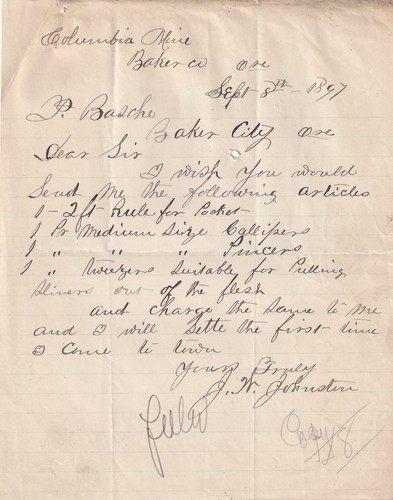 Columbia Mine
Baker co Ore
Sept 8th 1897
P. Basche
Baker City Ore
Dear Sir
I wish you would
Send Me the following articles
1 - 2 ft Rule for Pocket
1 Pr Medium Size Callipers
1 " " " Pincers
1 " tweezers Suitable for Pulling
Slivers out of the flesh
and charge the same to Me
and I will Settle the first time
I come to town
Yours Truly
J. W. Johnston